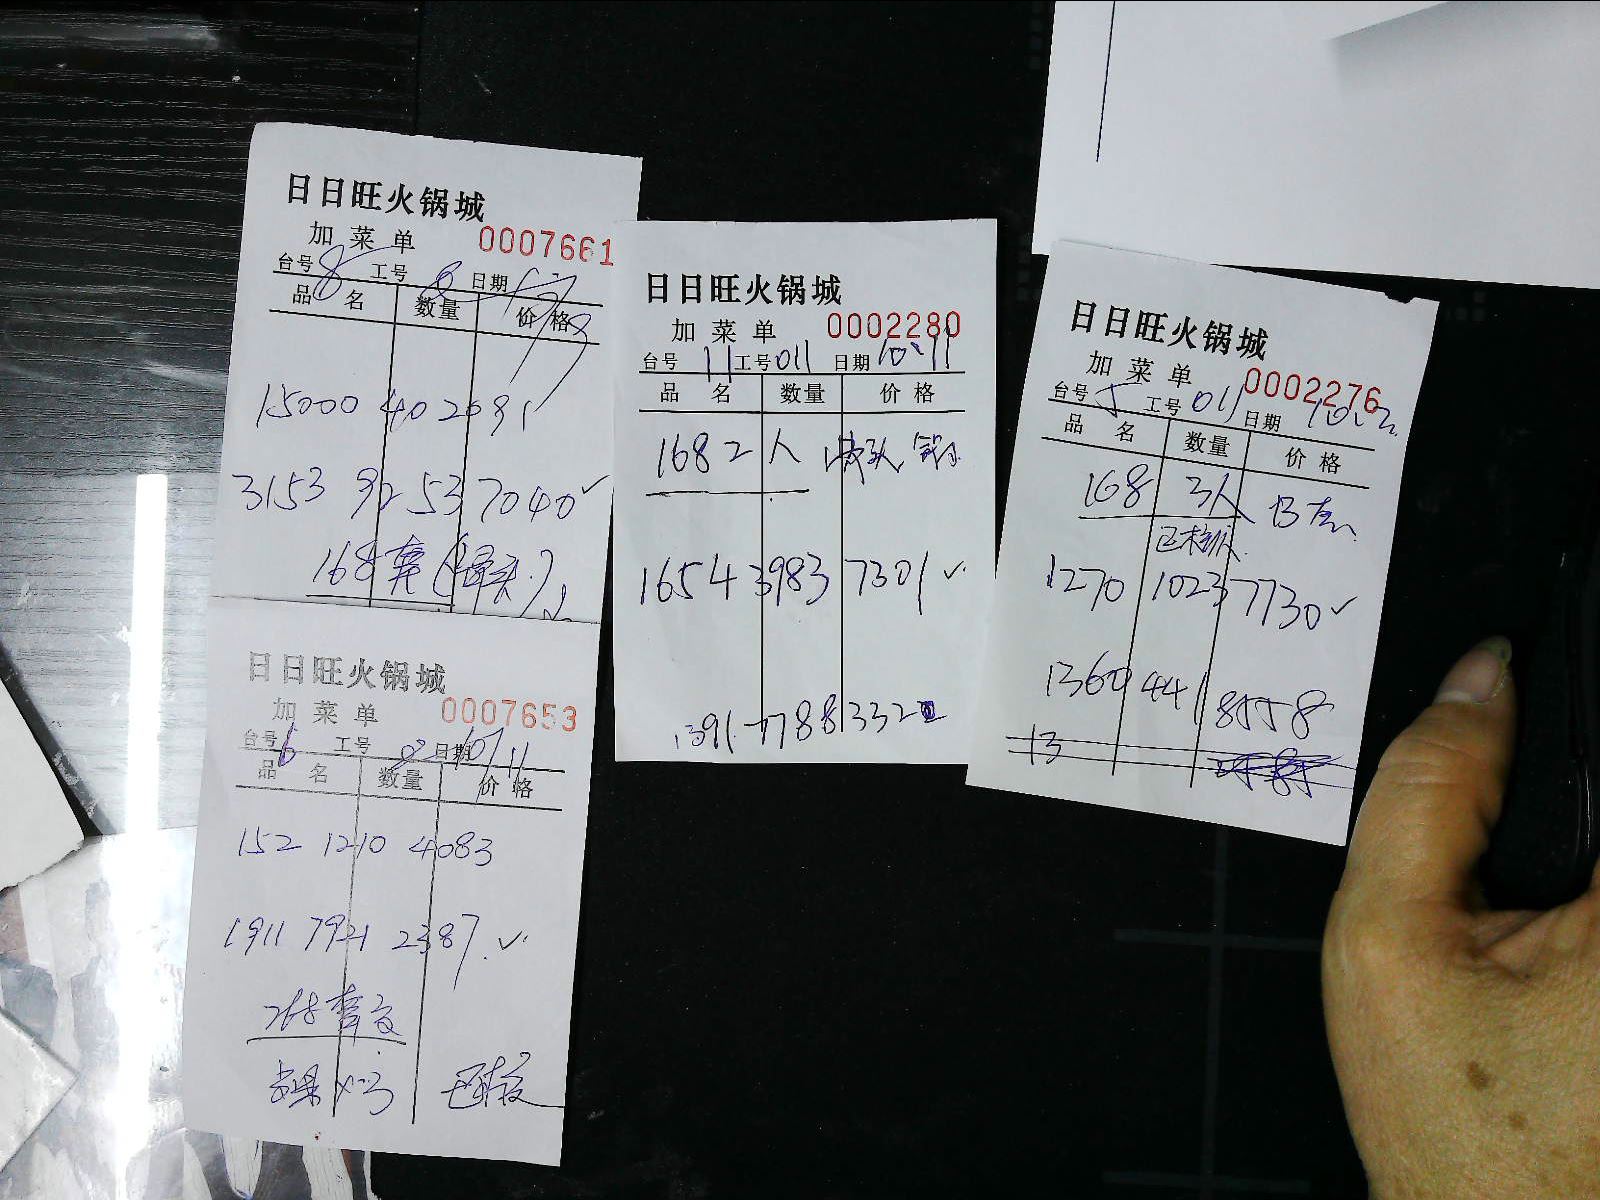 日日旺火锅城
加菜单 0007661
台号 8 工号 8 日期
品名 数量 价格
15000 40 2691
3153 92 53 7040✓
168套
日日旺火锅城
加菜单 0007653
台号 6 工号 日期 10/11
品名 数量 价格
152 1210 4083
1911 7921 2387.✓
268套
已核
日日旺火锅城
加菜单 0002280
台号 11 工号 011 日期 10.11
品名 数量 价格
168 2人 锅
1654 3983 7301✓
1391 7788 332
日日旺火锅城
加菜单 0002276
台号 5 工号 011 日期
品名 数量 价格
168 3人
已核
1270 1023 7730✓
1360 441 8558
13